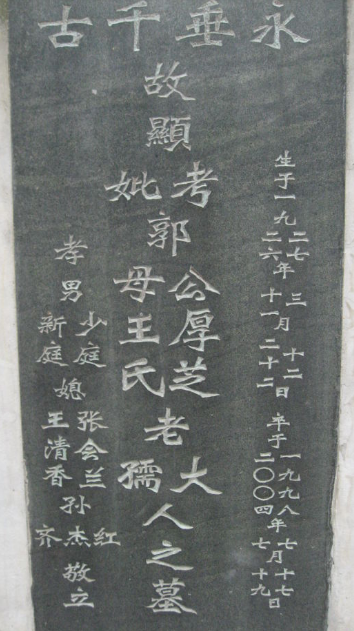 永垂千古
生于一九二七年三月十二日
二六 十一 二十二
卒于一九九八年七月十七日
二〇〇四 七 十九
故顯考妣郭公厚芝老大人之墓
母王氏 孺
孝男少庭
新庭
媳张会兰
王清香
孙杰红
齐
敬立